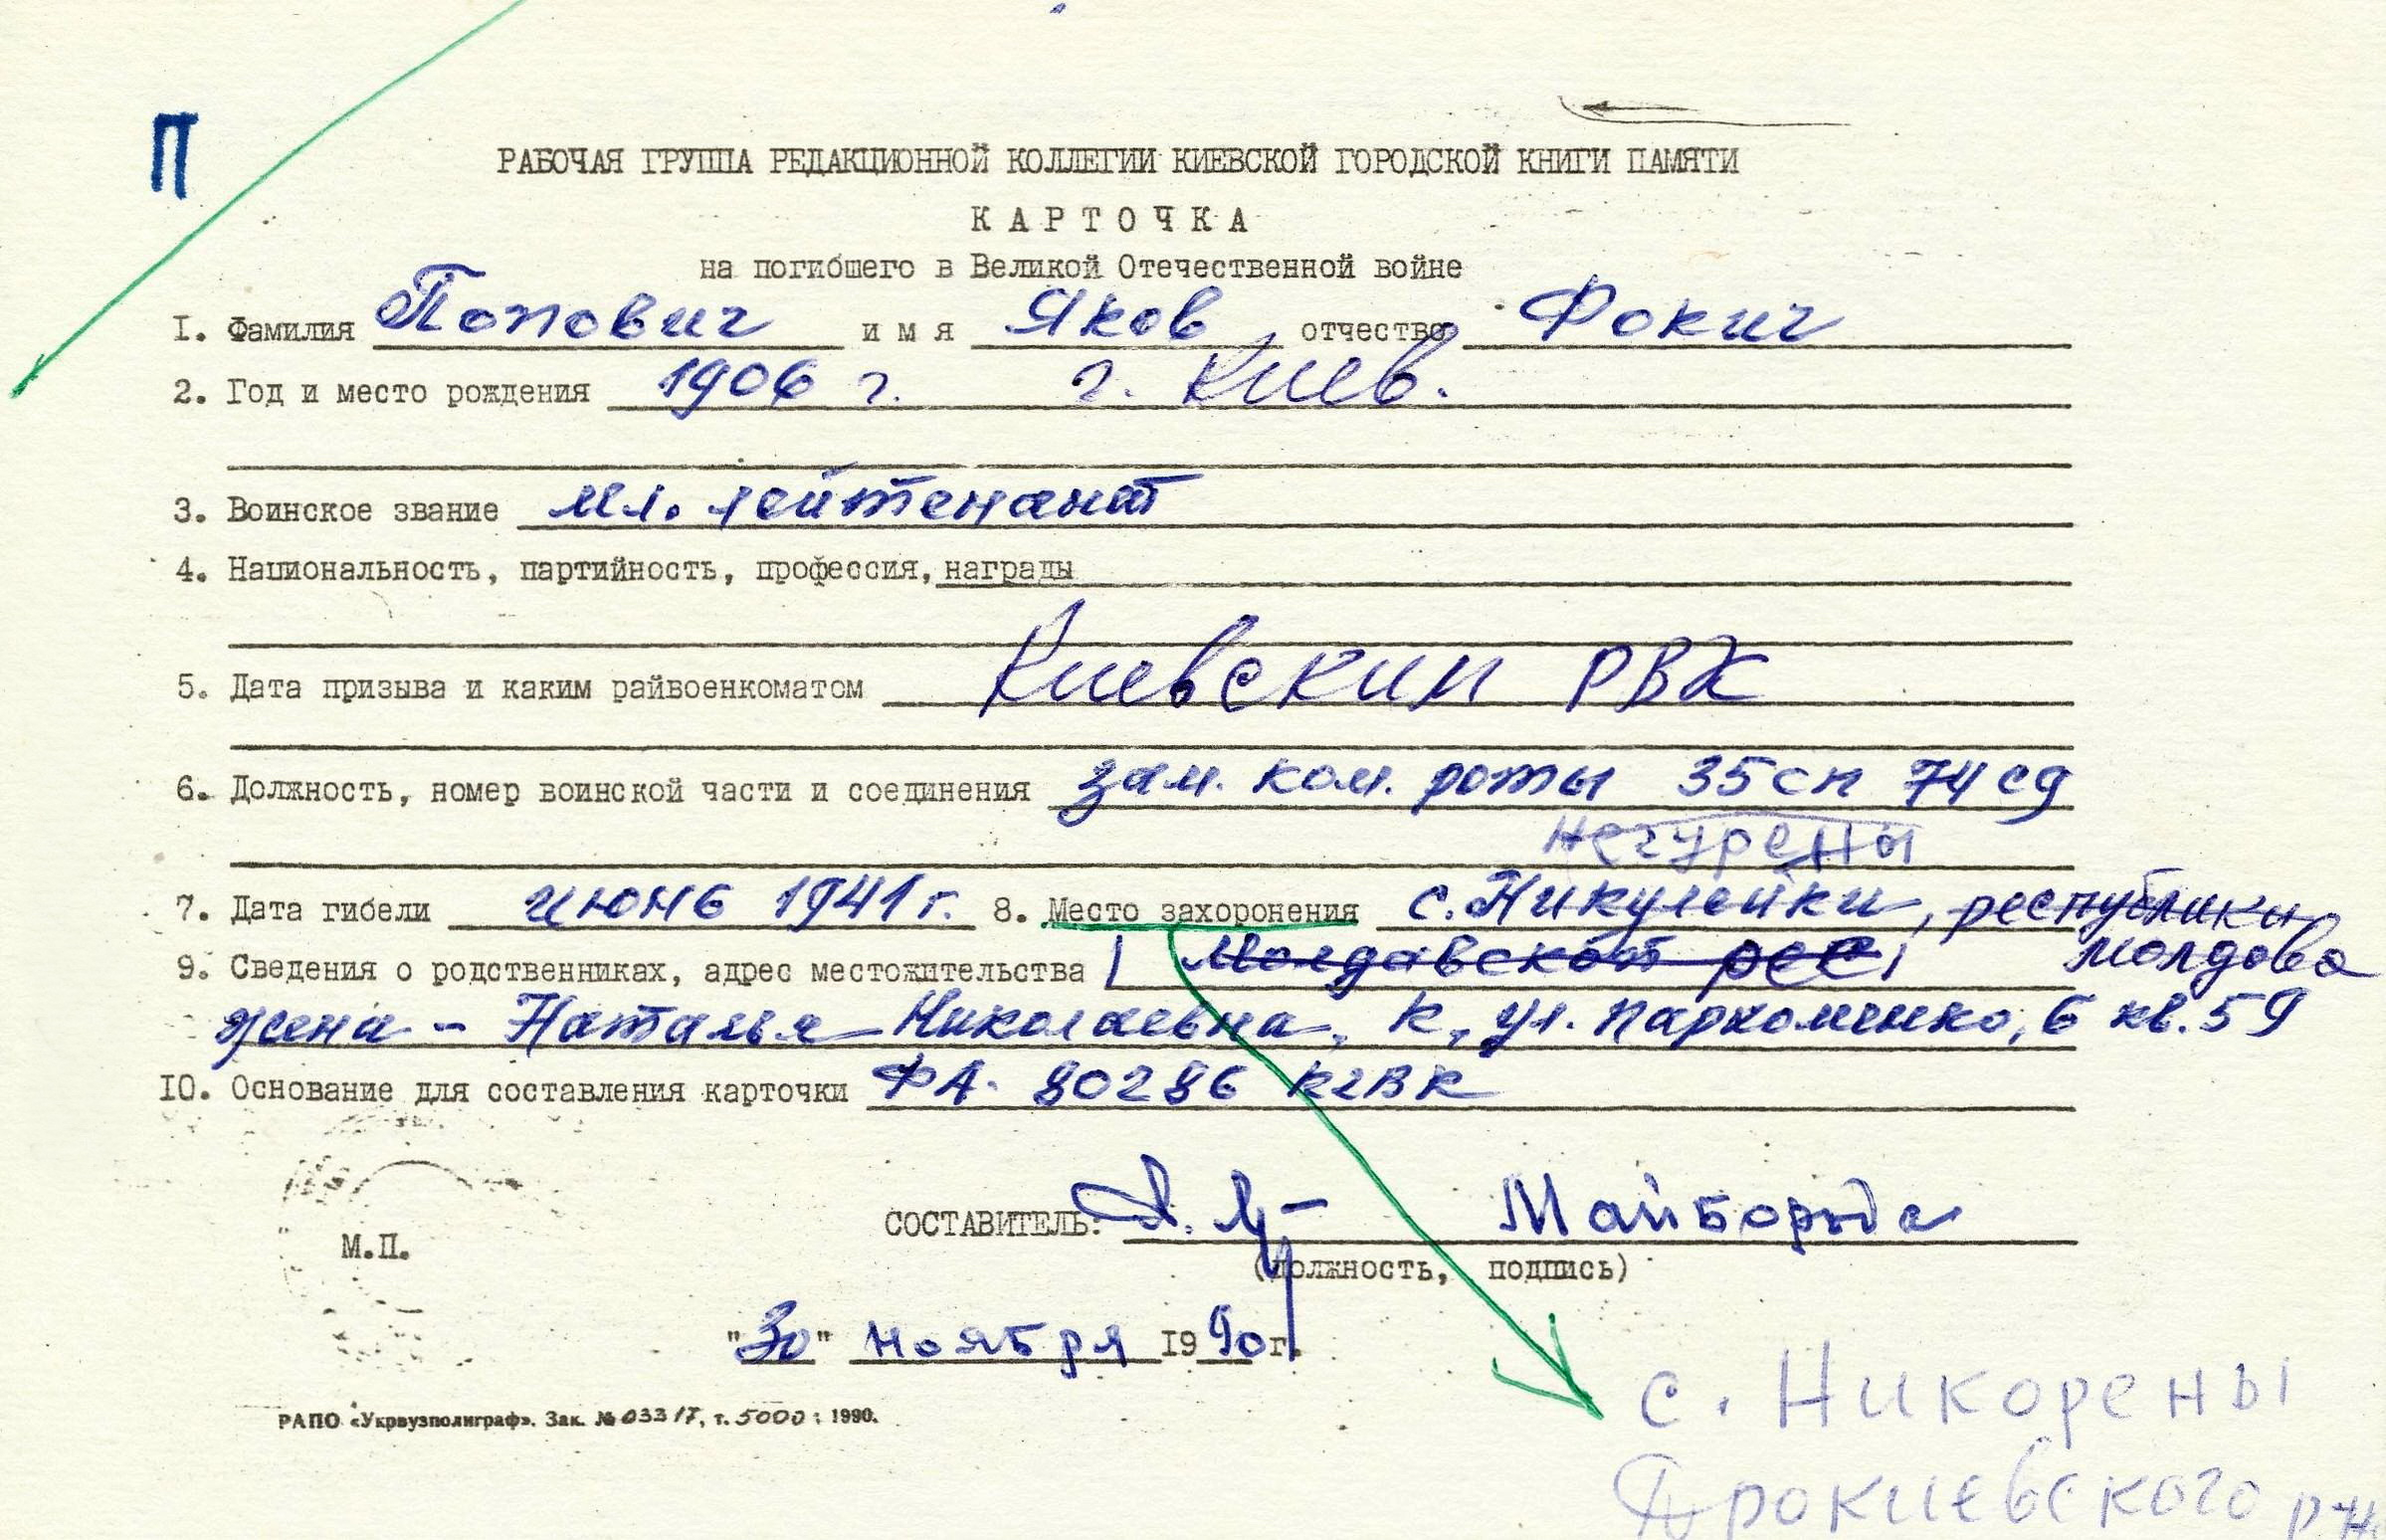 П
РАБОЧАЯ ГРУППА РЕДАКЦИОННОЙ КОЛЛЕГИИ КИЕВСКОЙ ГОРОДСКОЙ КНИГИ ПАМЯТИ
КАРТОЧКА
на погибшего в Великой Отечественной войне
1. Фамилия Попович имя Яков отчество Фокич
2. Год и место рождения 1906 г. г. Киев.
3. Воинское звание мл. лейтенант
4. Национальность, партийность, профессия, награды
5. Дата призыва и каким райвоенкоматом Киевским РВК
6. Должность, номер воинской части и соединения зам. ком. роты 35 сп 74 сд
Негурены
7. Дата гибели июнь 1941 г. 8. Место захоронения с. Никулейки, республики
9. Сведения о родственниках, адрес местожительства Молдавской ССР, Молдова
жена - Наталья Николаевна, К, ул. Пархоменко, 6 кв. 59
10. Основание для составления карточки ФА. 80286 КГВК
СОСТАВИТЕЛЬ: Майборода
(должность, подпись)
М.П.
"30" ноября 1990 г.
РАПО «Укрвузполиграф». Зак. № 033 17, т. 5000 : 1990.
с. Никорены
Дрокиевского р-на